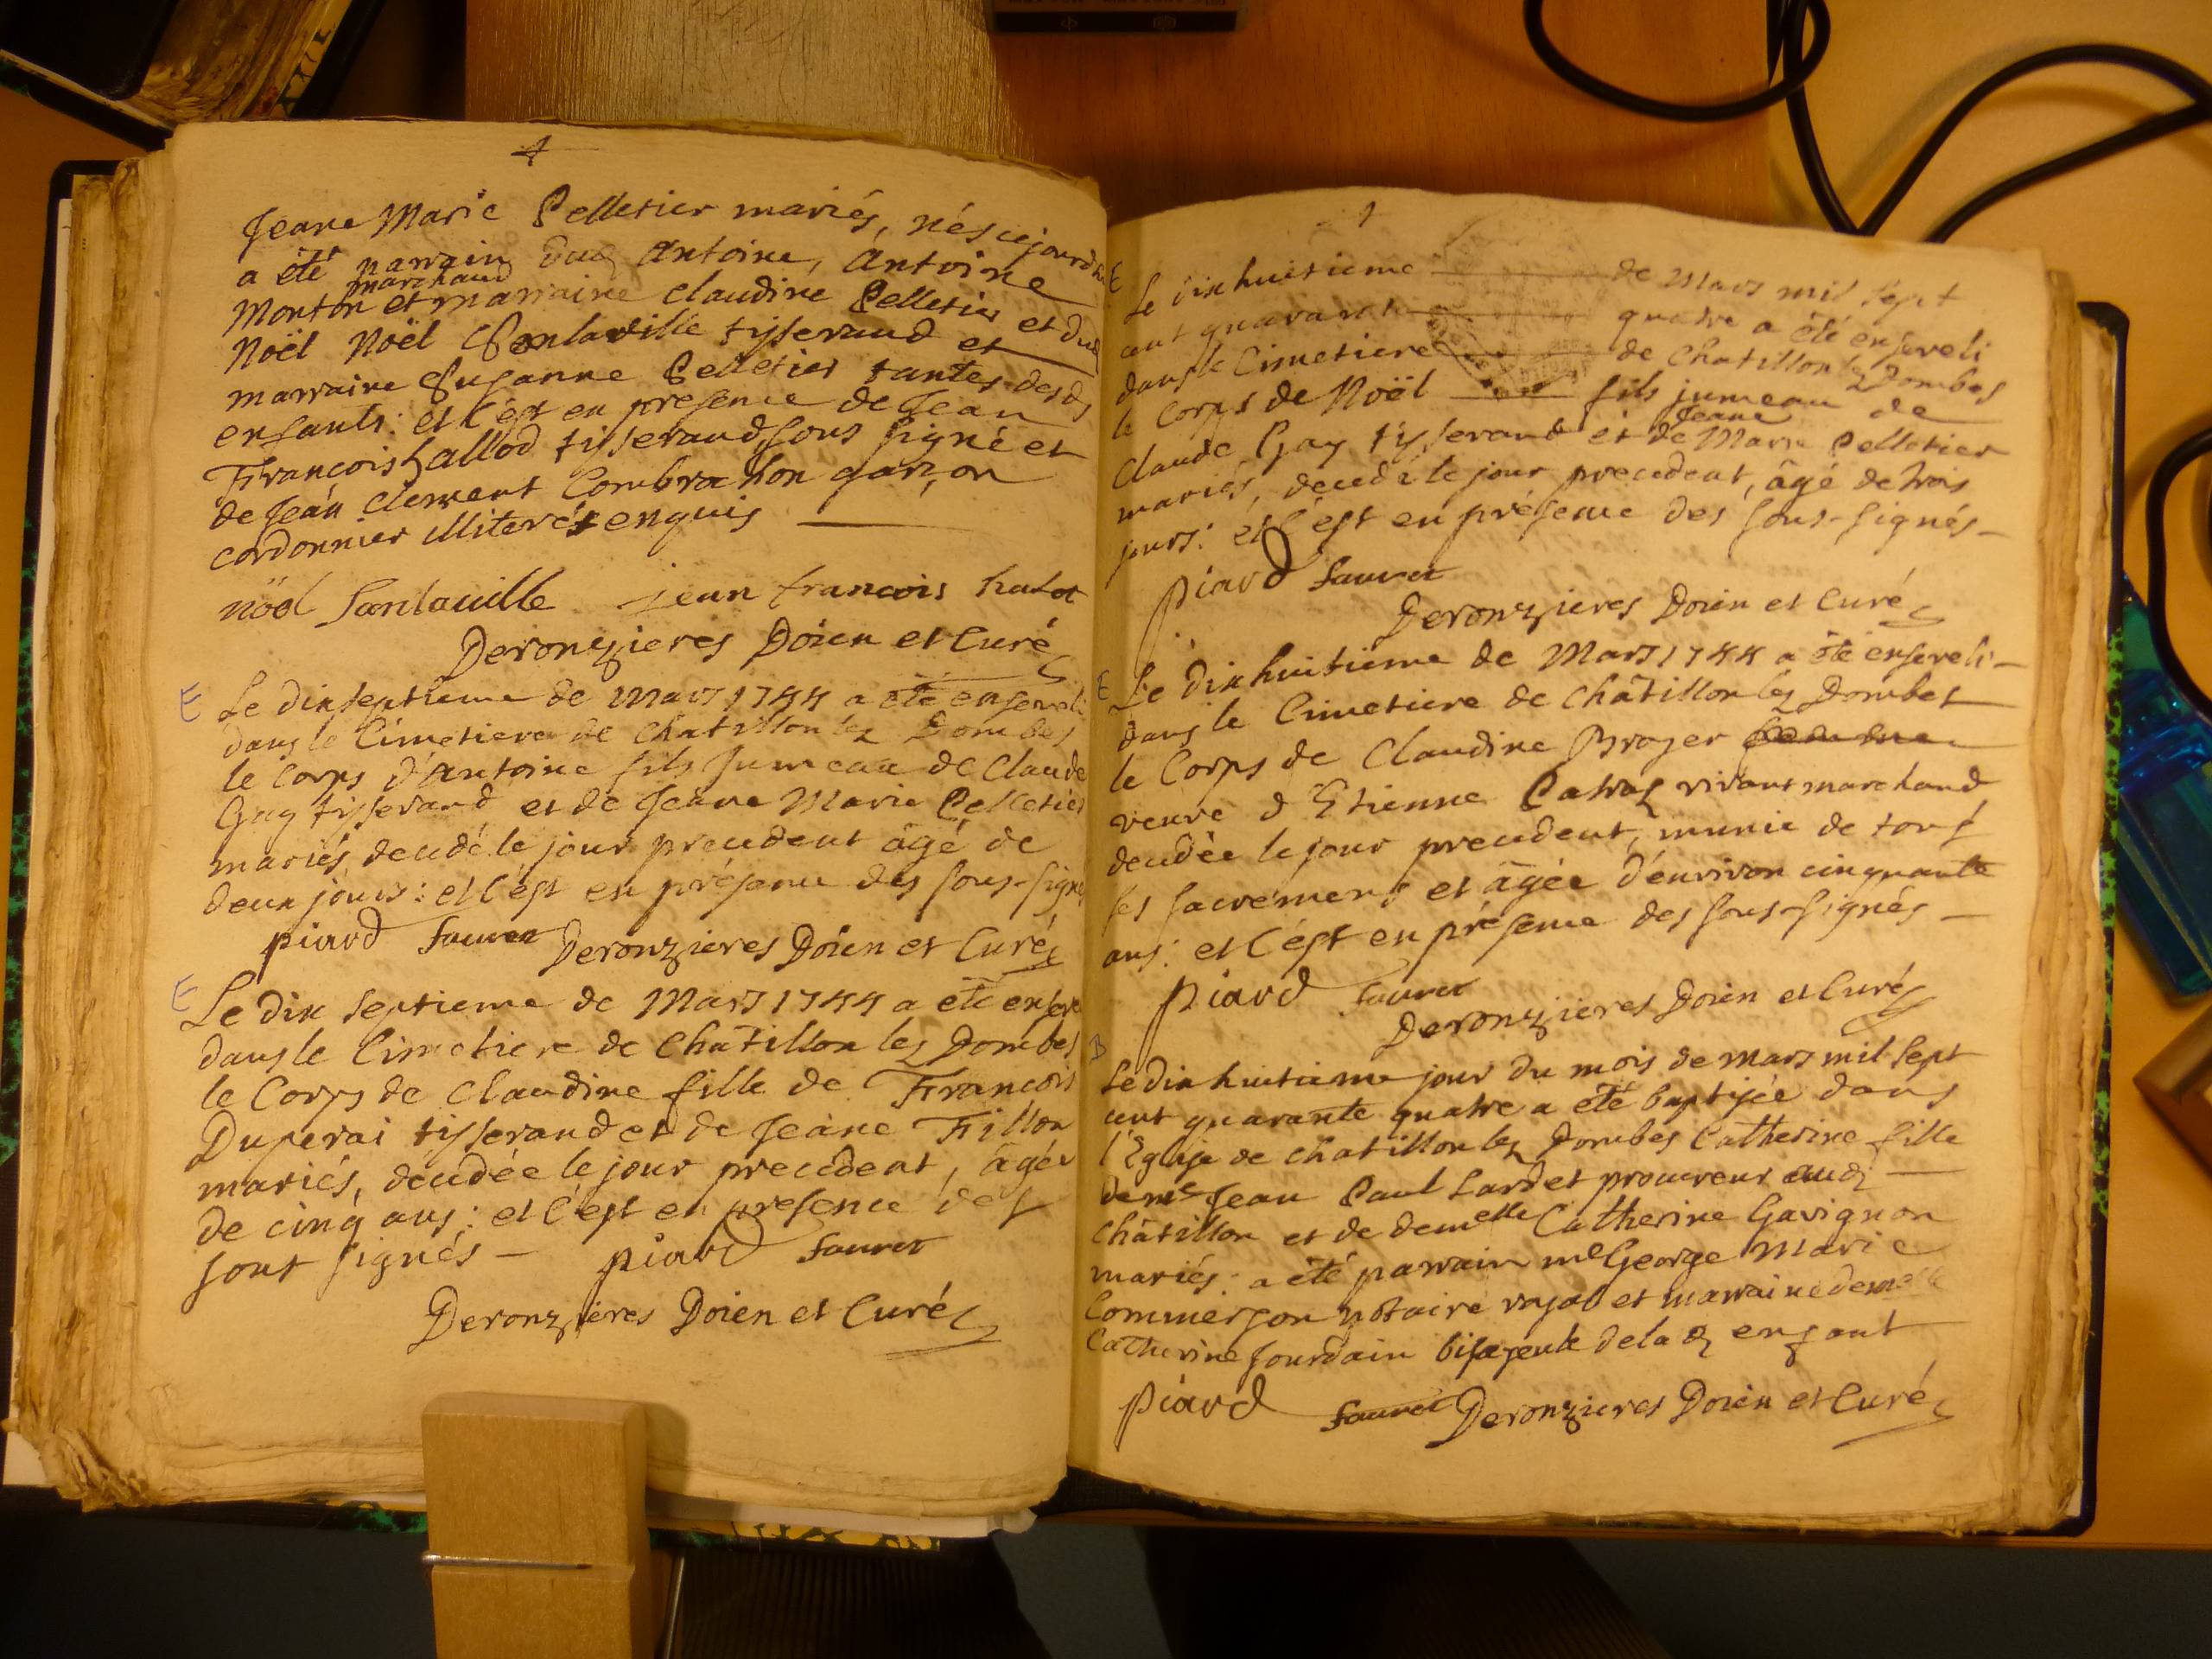 Jeane Marie Pelletier mariés, nés cejourdh
a été parrain dud Antoine, Antoine
marchand
Monton et marraine Claudine Pelletier et dud
Noël Noël Sanlaville tisserand et
marraine Susanne Pelletier tantes desds
enfants: et c'est en presence de Jean
François hallod tisserand sous signé et
de Jean Clement Combrachon garçon
cordonnier illiteré enquis
nöel Sanlauille jean francois halot
Deronzieres Doien et Curé
E Le dixseptieme de Mars 1744 a été enseveli
dans le Cimetiere de Chatillon lez Dombes
le Corps d'Antoine fils Jumeau de Claude
Guy tisserand et de Jeane Marie Pelletier
mariés, decedé le jour precedent âgé de
deux jours: et c'est en présence des sous-signé
piard Sauret Deronzieres Doien et Curé
E Le dix septieme de Mars 1744 a été enseve
dans le Cimetiere de Châtillon lez Dombes
le Corps de Claudine fille de François
Duperai tisserand et de Jeane Fillon
mariés, decedée le jour precedent, âgée
de cinq ans: et c'est en presence des
sous signés — piard Sauret
Deronzieres Doien et Curé
E Le dixhuitieme de Mars mil sept
cent quarante quatre a été enseveli
dans le Cimetiere de Chatillon lez Dombes
le Corps de Noël fils jumeau de
Jeane
Claude Guy tisserand et de Marie Pelletier
mariés, decedé le jour precedent, âgé de trois
jours: et c'est en présence des sous-signés —
piard Sauret
Deronzieres Doien et Curé
E Le dixhuitieme de Mars 1744 a été enseveli —
dans le Cimetiere de Châtillon lez Dombes
le Corps de Claudine Broyer
veuve d'Etienne Patras vivant marchand
decedée le jour precedent, munie de tous
les sacremens et âgée d'environ cinquante
ans: et c'est en présence des sous-signés —
piard Sauret
Deronzieres Doien et Curé
B Le dixhuitieme jour du mois de mars mil sept
cent quarante quatre a été baptisée dans
l'Eglise de Chatillon lez Dombes Catherine fille
de me Jean Paul Lardet procureur aud
Châtillon et de demelle Catherine Gavignon
mariés: a été parrain me George Marie
Commerson notaire royal et marraine demelle
Catherine Jourdain bisayeule de la d enfant
piard Sauret Deronzieres Doien et Curé